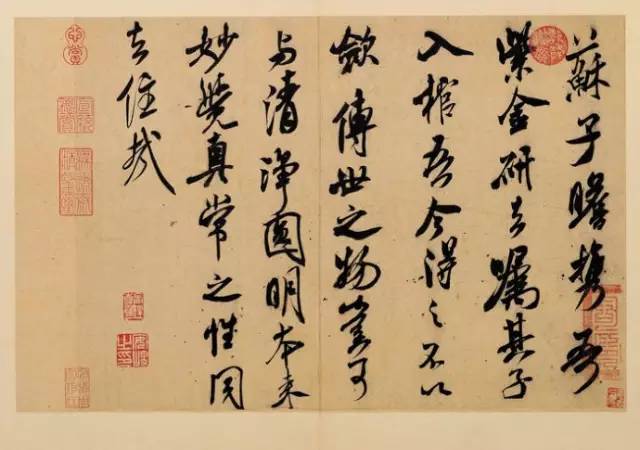 蘇子瞻携吾
紫金研去囑其子
入棺吾今得之不以
斂傳世之物豈可
与清淨圓明本來
妙覺真常之性同
去住哉